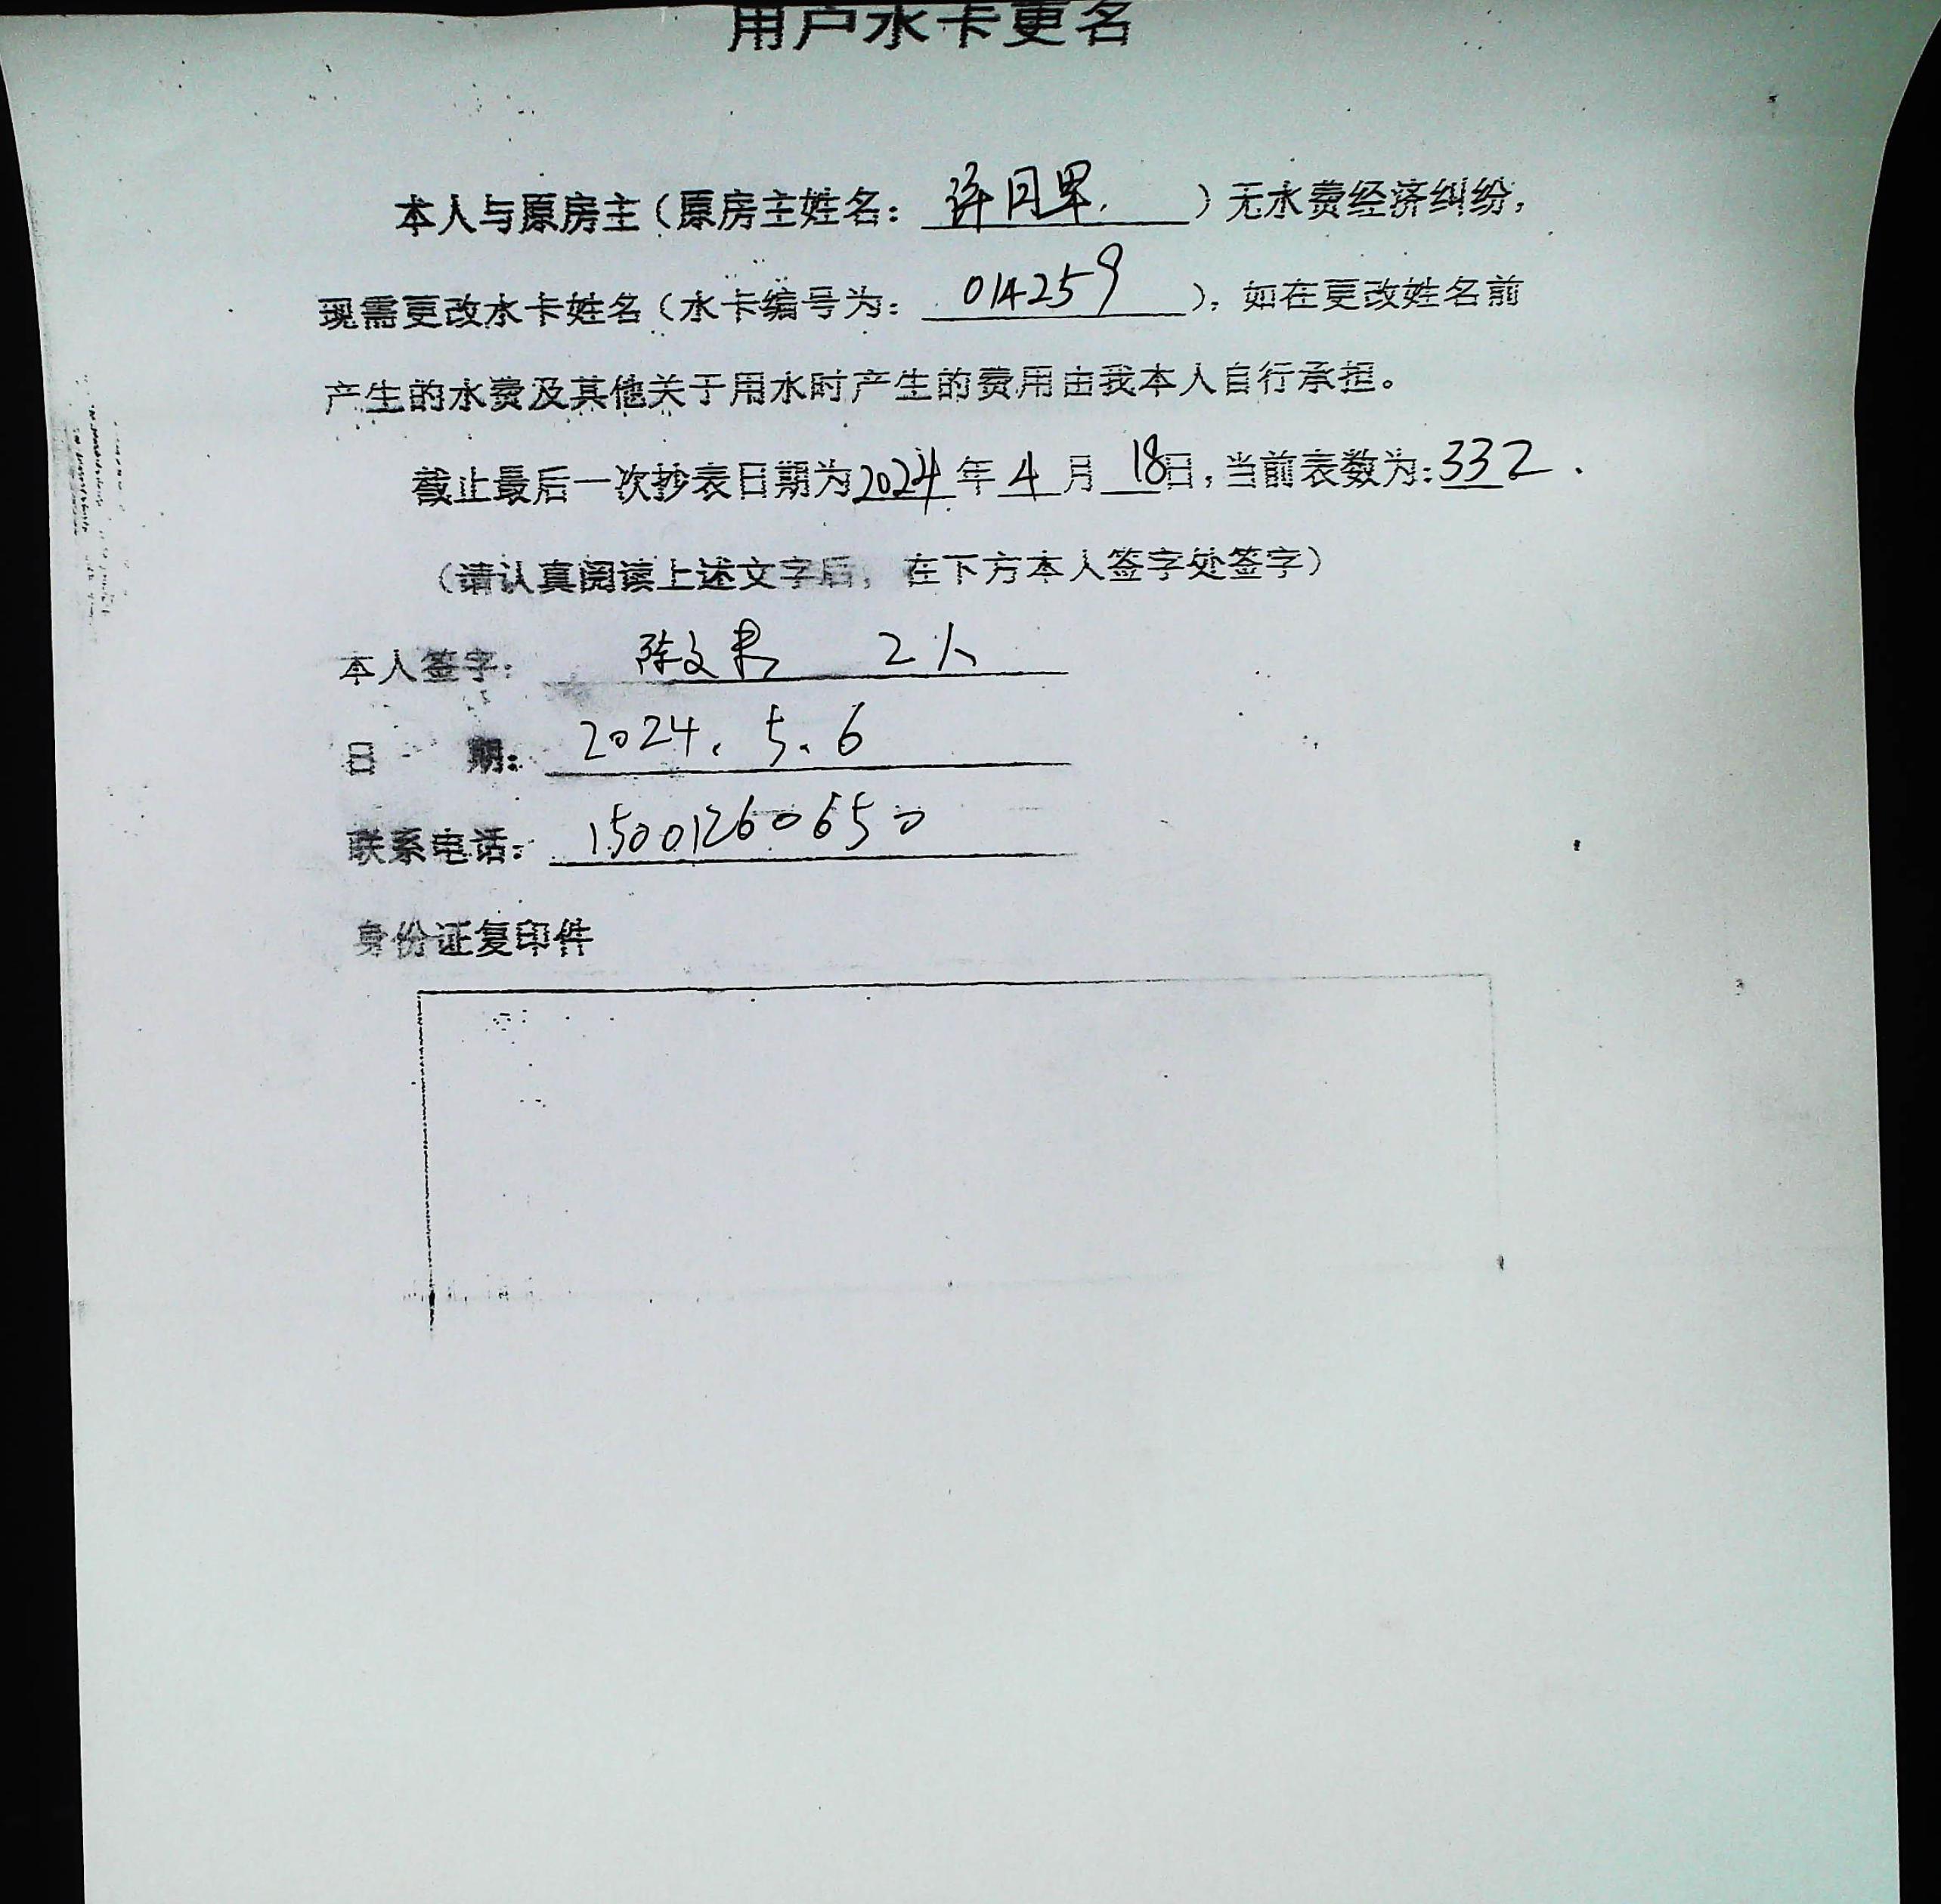 用户水卡更名
本人与原房主（原房主姓名：许月）无水费经济纠纷，
现需更改水卡姓名（水卡编号为：014259），如在更改姓名前
产生的水费及其他关于用水时产生的费用由我本人自行承担。
截止最后一次抄表日期为2024年4月18日，当前表数为：332.
（请认真阅读上述文字后，在下方本人签字处签字）
本人签字：陈文 2人
日期：2024.5.6
联系电话：15001260650
身份证复印件